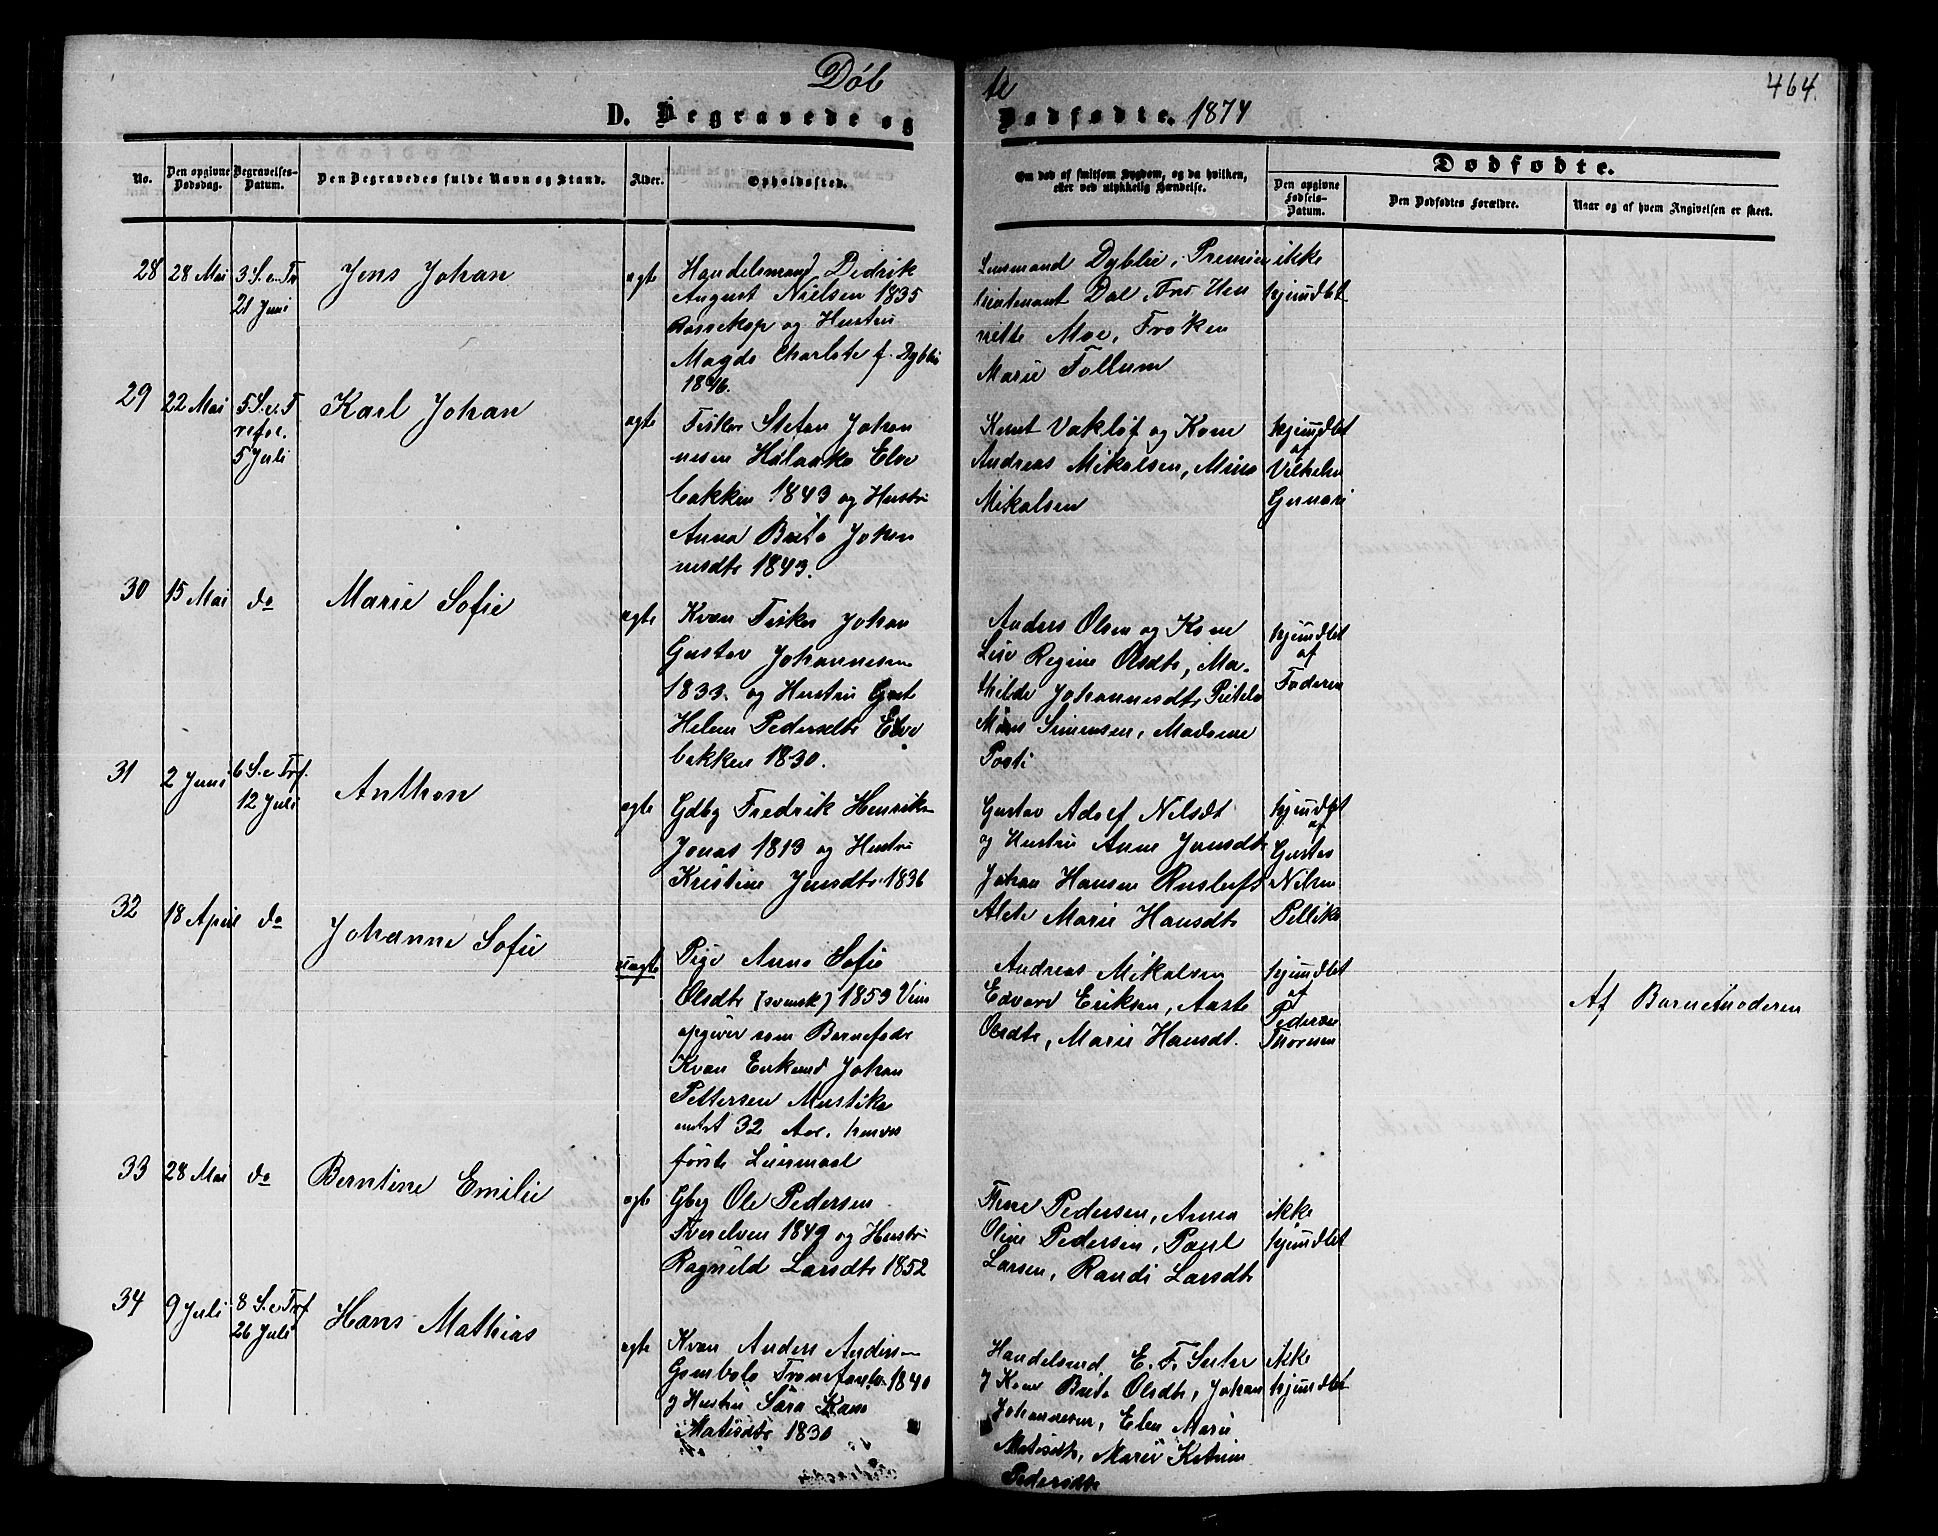 Døb
te
464.
D. Begravede og
Dødfødte. 1874
No.
Den opgivne Dødsdag.
Begravelses-Datum.
Den Begravedes fulde Navn og Stand.
Alder.
Opholdssted.
Om død af smitsom Sygdom, og da hvilken,
eller ved ulykkelig Hændelse.
Dødfødte.
Den opgivne Fødsels-Datum.
Den Dødfødtes Forældre.
Naar og af hvem Angivelsen er skeet.
28 28 Mai 3 S. e. Tr
21 Juni
Jens Johan
ægte
Handelsmand Dedrik
August Nielsen 1835
Bossekop og Hustru
Magda Charlote f. Dyblie
1846.
Lensmand Dyblie, Premier
lieutenant Dal, Fru Hen
nette Moe, Frøken
Marie Follum
ikke
hjemdbt
29 22 Mai 5 S. e. T
refol.
5 Juli
Karl Johan
ægte
Fisker Stefan Johan
nesen Halaako Elve
bakken 1843 og Hustru
Anna Brita Johan
nesdtr 1843.
Knut Vakløf og Kone
Andreas Mikalsen, Mina
Mikalsen
hjemdbt
af
Vilhelm
30 15 Mai do
Marie Sofie
ægte
Kvæn Fisker Johan
Gustav Johannesen
1833 og Hustru Greta
Helena Pedersdtr Elve
bakken 1830.
Anders Olsen og Kone
Lise Regine Olsdtr, Ma-
thilde Johannesdtr Pietela
Måns Simensen, Madame
Posti
hjemdbt
af
Faderen
31 2 Juni 6 S. e Tref.
12 Juli
Anthon
ægte
Gdbg Fredrik Henriksen
Jonas 1813 og Hustru
Kristine Jensdtr 1836
Gustav Adolf Nilsdt
og Hustru Anne Jensdtr
Johan Hansen
Alet Marie Hansdtr
hjemdbt
af
Gustav
Nilsen
Pellika
32 18 April do
Johanne Sofie
uægte
Pige Anna Sofie
Olsdtr (svensk) 1853 Hun
opgiver som Barnefader
Kvæn Enkemd Johan
Pettersen Mustika
omtrt 32 Aar. hendes
første Leiermaal
Andreas Mikalsen
Edvard Eriksen, Aaste
Olsdtr, Marie Hansdt.
hjemdbt
af
Peder
Thoresen
Af Barnemoderen
33 28 Mai do
Berntine Emilie
ægte
Gbg Ole Pedersen
Tverelven 1849 og Hustru
Ragnild Larsdtr 1852
Pedersen, Anna
Oline Pedersen, Paul
Larsen, Randi Larsdtr
ikke
hjemdbt
34 9 Juli 8 S. e Tref
26 Juli
Hans Mathias
ægte
Kvæn Anders Anders
1840
og Hustru Sara Kaisa
Matisdtr 1830
Handelsmd E. F.
og Kone Brita Olsdtr, Johan
Johannesen, Elen Marie
Matisdtr, Marie Katrine
Pedersdtr
ikke
hjemdbt